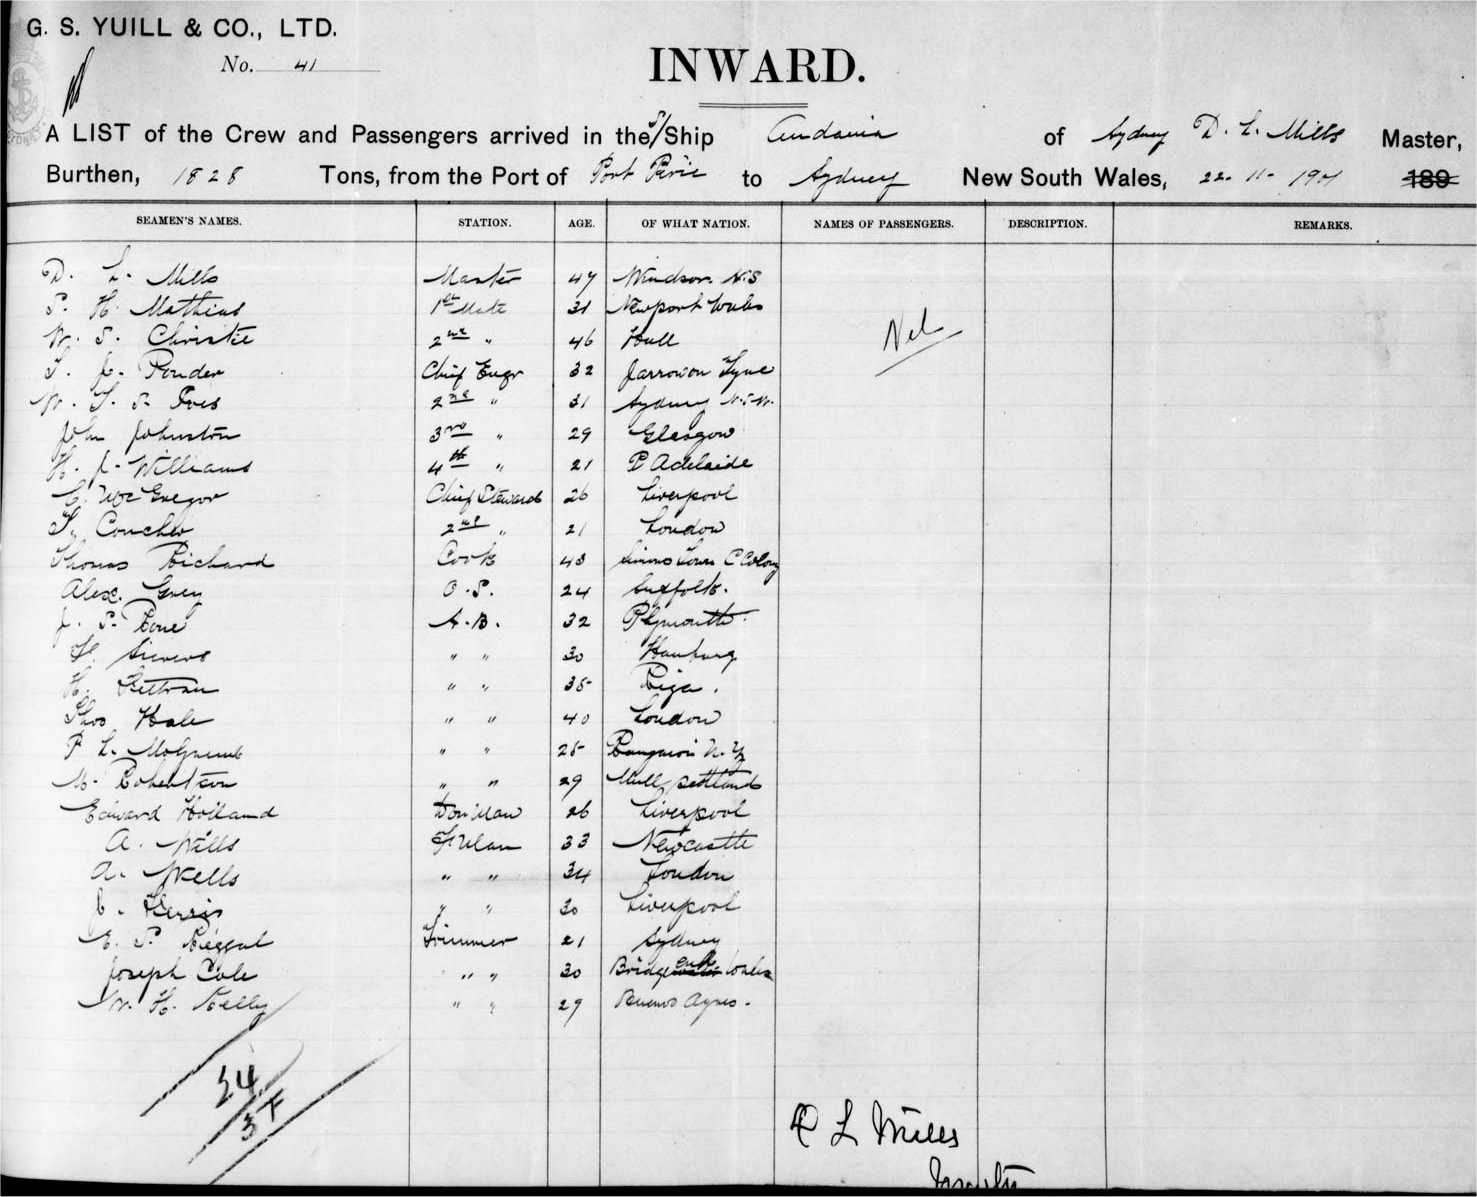 G. S. YUILL & CO., LTD.
No. 41
INWARD.
A LIST of the Crew and Passengers arrived in the S/Ship of Sydney D. L. Mills Master,
Burthen, 1828 Tons, from the Port of Port Pirie to Sydney New South Wales, 22-11-1901 189
SEAMEN'S NAMES. STATION. AGE. OF WHAT NATION. NAMES OF PASSENGERS. DESCRIPTION. REMARKS.
D. L. Mills Master 47 Windsor. N.S
S. H. Mathias 1st Mate 31 Newport Wales
W. S. Christie 2nd " 46 Hull
Nil
J. Ponder Chief Engr 32 Jarrow on Tyne
W. Ives 2nd " 31 Sydney N.S.W.
John Johnston 3rd " 29 Glasgow
H. J. Williams 4th " 21 P Adelaide
C. McGregor Chief Steward 26 Liverpool
2nd " 21 London
Thomas Richard Cook 43 Simons Town C Colony
Alex. Grey O.S. 24 Suffolk.
J. S. Bone A.B. 32 Plymouth.
H. Sievers " " 30 Hamburg
H. " " 35 Riga.
Thos Hale " " 40 London
P L. " " 25 N.Z
M. Robertson " " 29 Mull Scotland
Edward Holland Donkman 26 Liverpool
A. Wills F'Man 33 Newcastle
A. Wells " " 34 London
" " 30 Liverpool
E. S. Trimmer 21 Sydney
Joseph Cole " " 30 Bridgend Wales
W. H. Kelly " " 29 Buenos Ayres.
24
34
D L Mills
Master